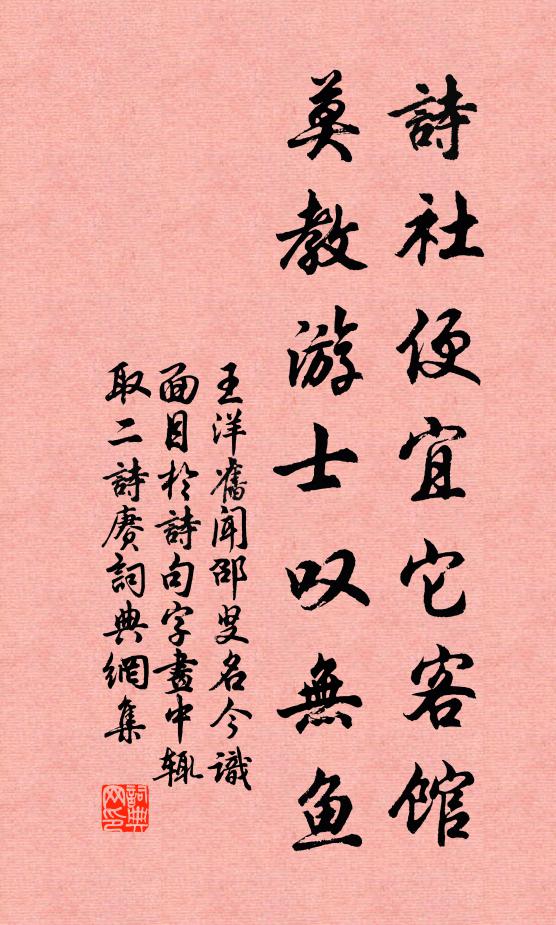 詩社便宜它客館
莫教游士叹無鱼
王洋舊聞邵叟名今識
面目於詩句字畫中輒
取二詩賡詞典網集
詞典網印